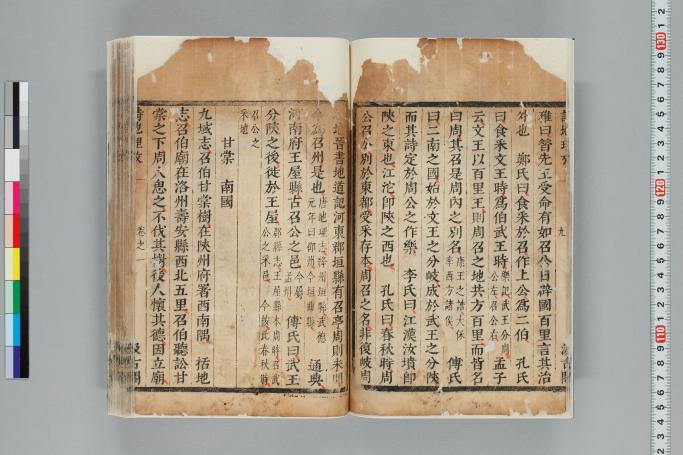 雅曰昔先王受命有如召公日辟國百里言其治
外也 鄭氏曰食采於召作上公為二伯 孔氏
曰食采文王時為伯武王時樂記武王分周公左召公右 孟子
云文王以百里王則周召之地共方百里而皆名
曰周其召是周內之別名 傅氏
曰二南之國始於文王之分岐成於武王之分陝
而其詩定於周公之作樂 李氏曰江漢汝墳即
陝之東也江沱即陝之西也 孔氏曰春秋時周
公召公別於東都受采存本周召之名非復岐周
之地晉書地道記河東郡垣縣有召亭周則未聞
今為召州是也 通典
河南府王屋縣古召公之邑今屬孟州 傅氏曰武王
分陝之後徙於王屋
召公之采地
甘棠 南國
九域志召伯甘棠樹在陝州府署西南隅 括地
志召伯廟在洛州壽安縣西北五里召伯聽訟甘
棠之下周人思之不伐其樹後人懷其德因立廟
詩地理攷
卷之一
汲古閣
130
120
110